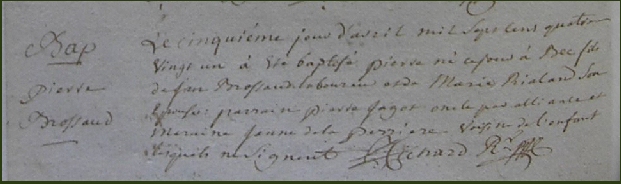 Bap
Pierre
Brossaud
Le cinquiéme jour d'avril mil sept cens quatre
vingt un à été baptisé pierre né ce jour à Bec fils
de jan Brossaud laboureur et de Marie Rialand son
Epouse: parrain pierre fagot oncle par alliance et
maraine janne de la perriere voisine de l'enfant
lesquels ne signent Richard Rr